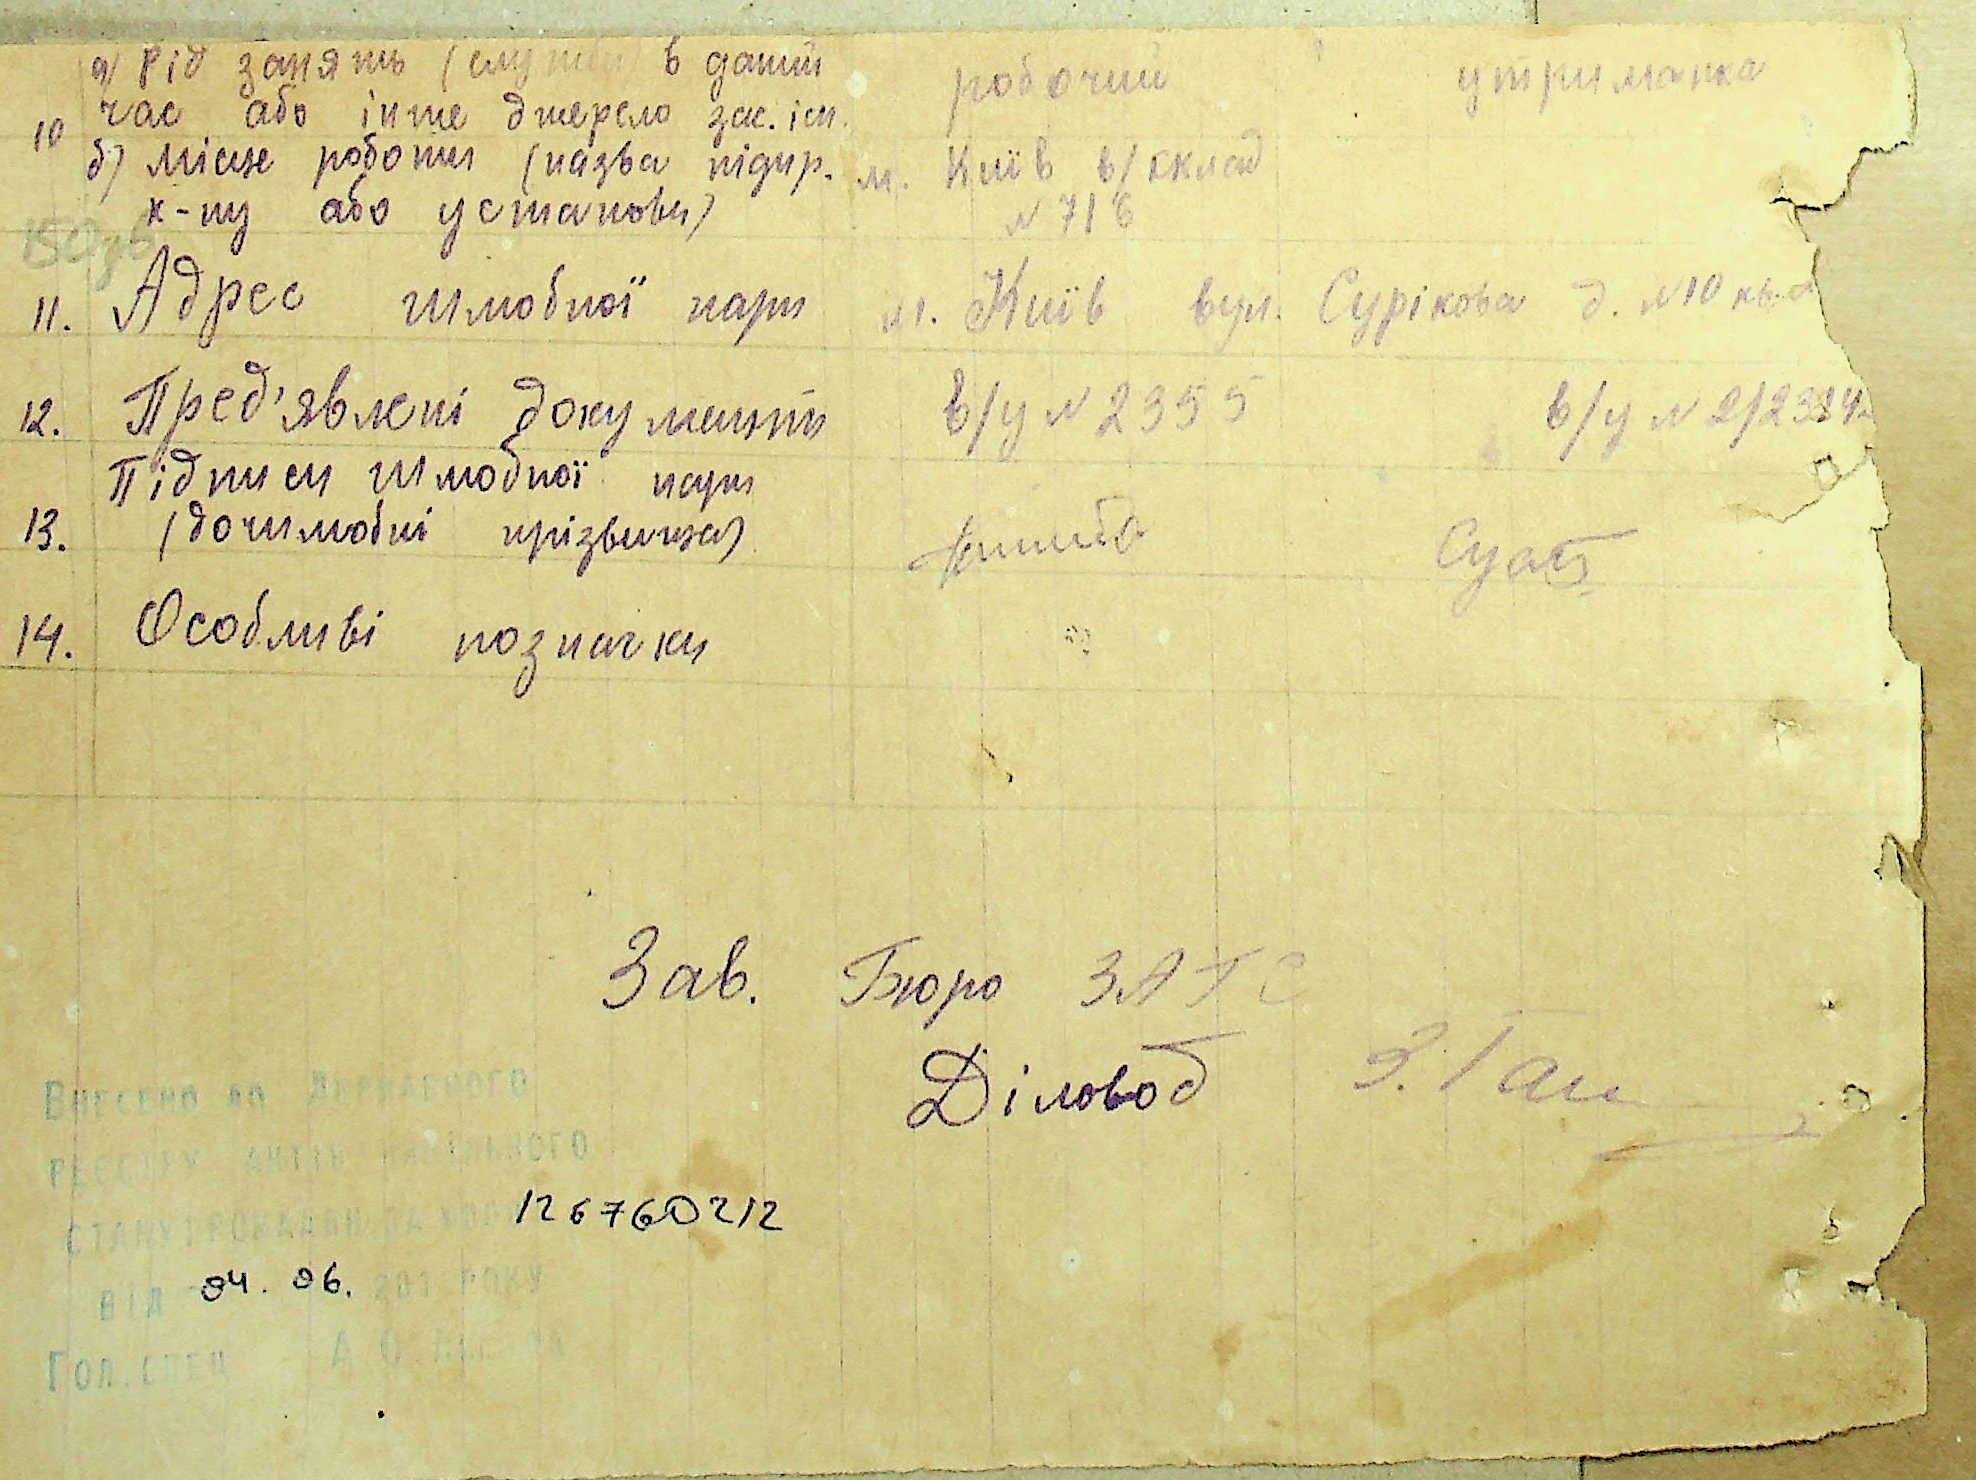 а) Рід занять (служби) в даний робочий утриманка
10 час або інше джерело зас. існ.
б) Місце роботи (назва підпр. м. Київ в/склад
к-пу або установи) № 718
11. Адрес шлюбної пари м. Київ вул. Сурікова д. №10 кв.
12. Пред'явлені документи в/у № 2355 в/у № 2/2314
Підписи шлюбної пари
13. (дошлюбні прізвища)
14. Особливі позначки
Зав. Бюро ЗАГС
Діловод З. Ган
Внесено до Державного
реєстру актів цивільного
стану громадян за №
126760212
від 04. 06. 201 року
Гол. спец